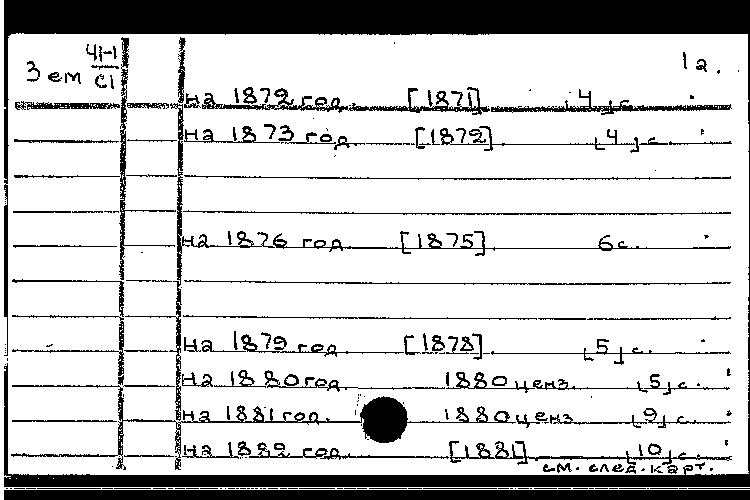 41-1 1а.
3 ем С1
на 1872 год. [1871] ⌊4⌋ с.
на 1873 год [1872]. ⌊4⌋ с.
на 1876 год [1875]. 6 с.
на 1879 год. [1878]. ⌊5⌋ с.
на 1880 год. 1880 ценз. ⌊5⌋ с.
на 1881 год. 1880 ценз ⌊9⌋ с.
на 1882 год. [1881] ⌊10⌋ с.
см. след. карт.